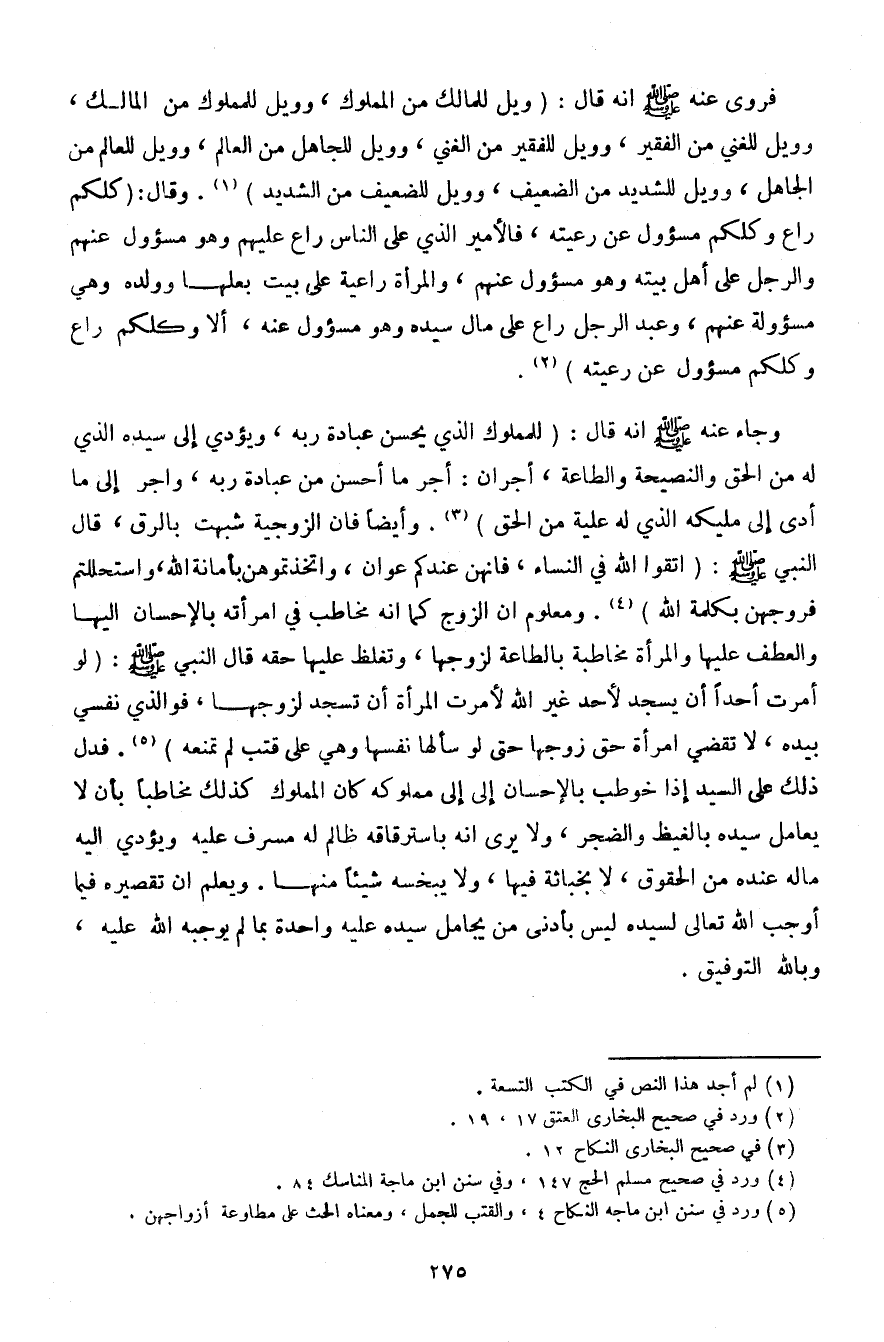 فروى عنه ﷺ انه قال : ( ويل للمالك من المملوك ، وويل للمملوك من المالك ،
وويل للغني من الفقير ، وويل للفقير من الغني ، وويل للجاهل من العالم ، وويل للعالم من
الجاهل ، وويل للشديد من الضعيف ، وويل للضعيف من الشديد ) (١) . وقال:(كلكم
راع وكلكم مسؤول عن رعيته ، فالأمير الذي على الناس راع عليهم وهو مسؤول عنهم
والرجل على أهل بيته وهو مسؤول عنهم ، والمرأة راعية على بيت بعلها وولده وهي
مسؤولة عنهم ، وعبد الرجل راع على مال سيده وهو مسؤول عنه ، ألا وكلكم راع
وكلكم مسؤول عن رعيته ) (٢) .
وجاء عنه ﷺ انه قال : ( للمملوك الذي يحسن عبادة ربه ، ويؤدي إلى سيده الذي
له من الحق والنصيحة والطاعة ، أجران : أجر ما أحسن من عبادة ربه ، واجر إلى ما
أدى إلى مليكه الذي له علية من الحق ) (٣) . وأيضاً فان الزوجية شبهت بالرق ، قال
النبي ﷺ : ( اتقوا الله في النساء ، فانهن عندكم عوان ، واتخذتموهن بأمانة الله ، واستحللتم
فروجهن بكلمة الله ) (٤) . ومعلوم ان الزوج كما انه مخاطب في امرأته بالإحسان اليها
والعطف عليها والمرأة مخاطبة بالطاعة لزوجها ، وتغلظ عليها حقه قال النبي ﷺ : ( لو
أمرت أحداً أن يسجد لأحد غير الله لأمرت المرأة أن تسجد لزوجها ، فوالذي نفسي
بيده ، لا تقضي امرأة حق زوجها حق لو سألها نفسها وهي على قتب لم تمنعه ) (٥) . فدل
ذلك على السيد إذا خوطب بالإحسان إلى إلى مملوكه كان المملوك كذلك مخاطباً بأن لا
يعامل سيده بالغيظ والضجر ، ولا يرى انه باسترقاقه ظالم له مسرف عليه ويؤدي اليه
ماله عنده من الحقوق ، لا بخباثة فيها ، ولا يبخسه شيئاً منها . ويعلم ان تقصيره فيما
أوجب الله تعالى لسيده ليس بأدنى من يجامل سيده عليه واحدة بما لم يوجبه الله عليه ،
وبالله التوفيق .
(١) لم أجد هذا النص في الكتب التسعة .
(٢) ورد في صحيح البخارى العتق ١٧ ، ١٩ .
(٣) في صحيح البخارى النكاح ١٢ .
(٤) ورد في صحيح مسلم الحج ١٤٧ ، وفي سنن ابن ماجة المناسك ٨٤ .
(٥) ورد في سنن ابن ماجه النكاح ٤ ، والقتب للجمل ، ومعناه الحث على مطاوعة أزواجهن .
٢٧٥